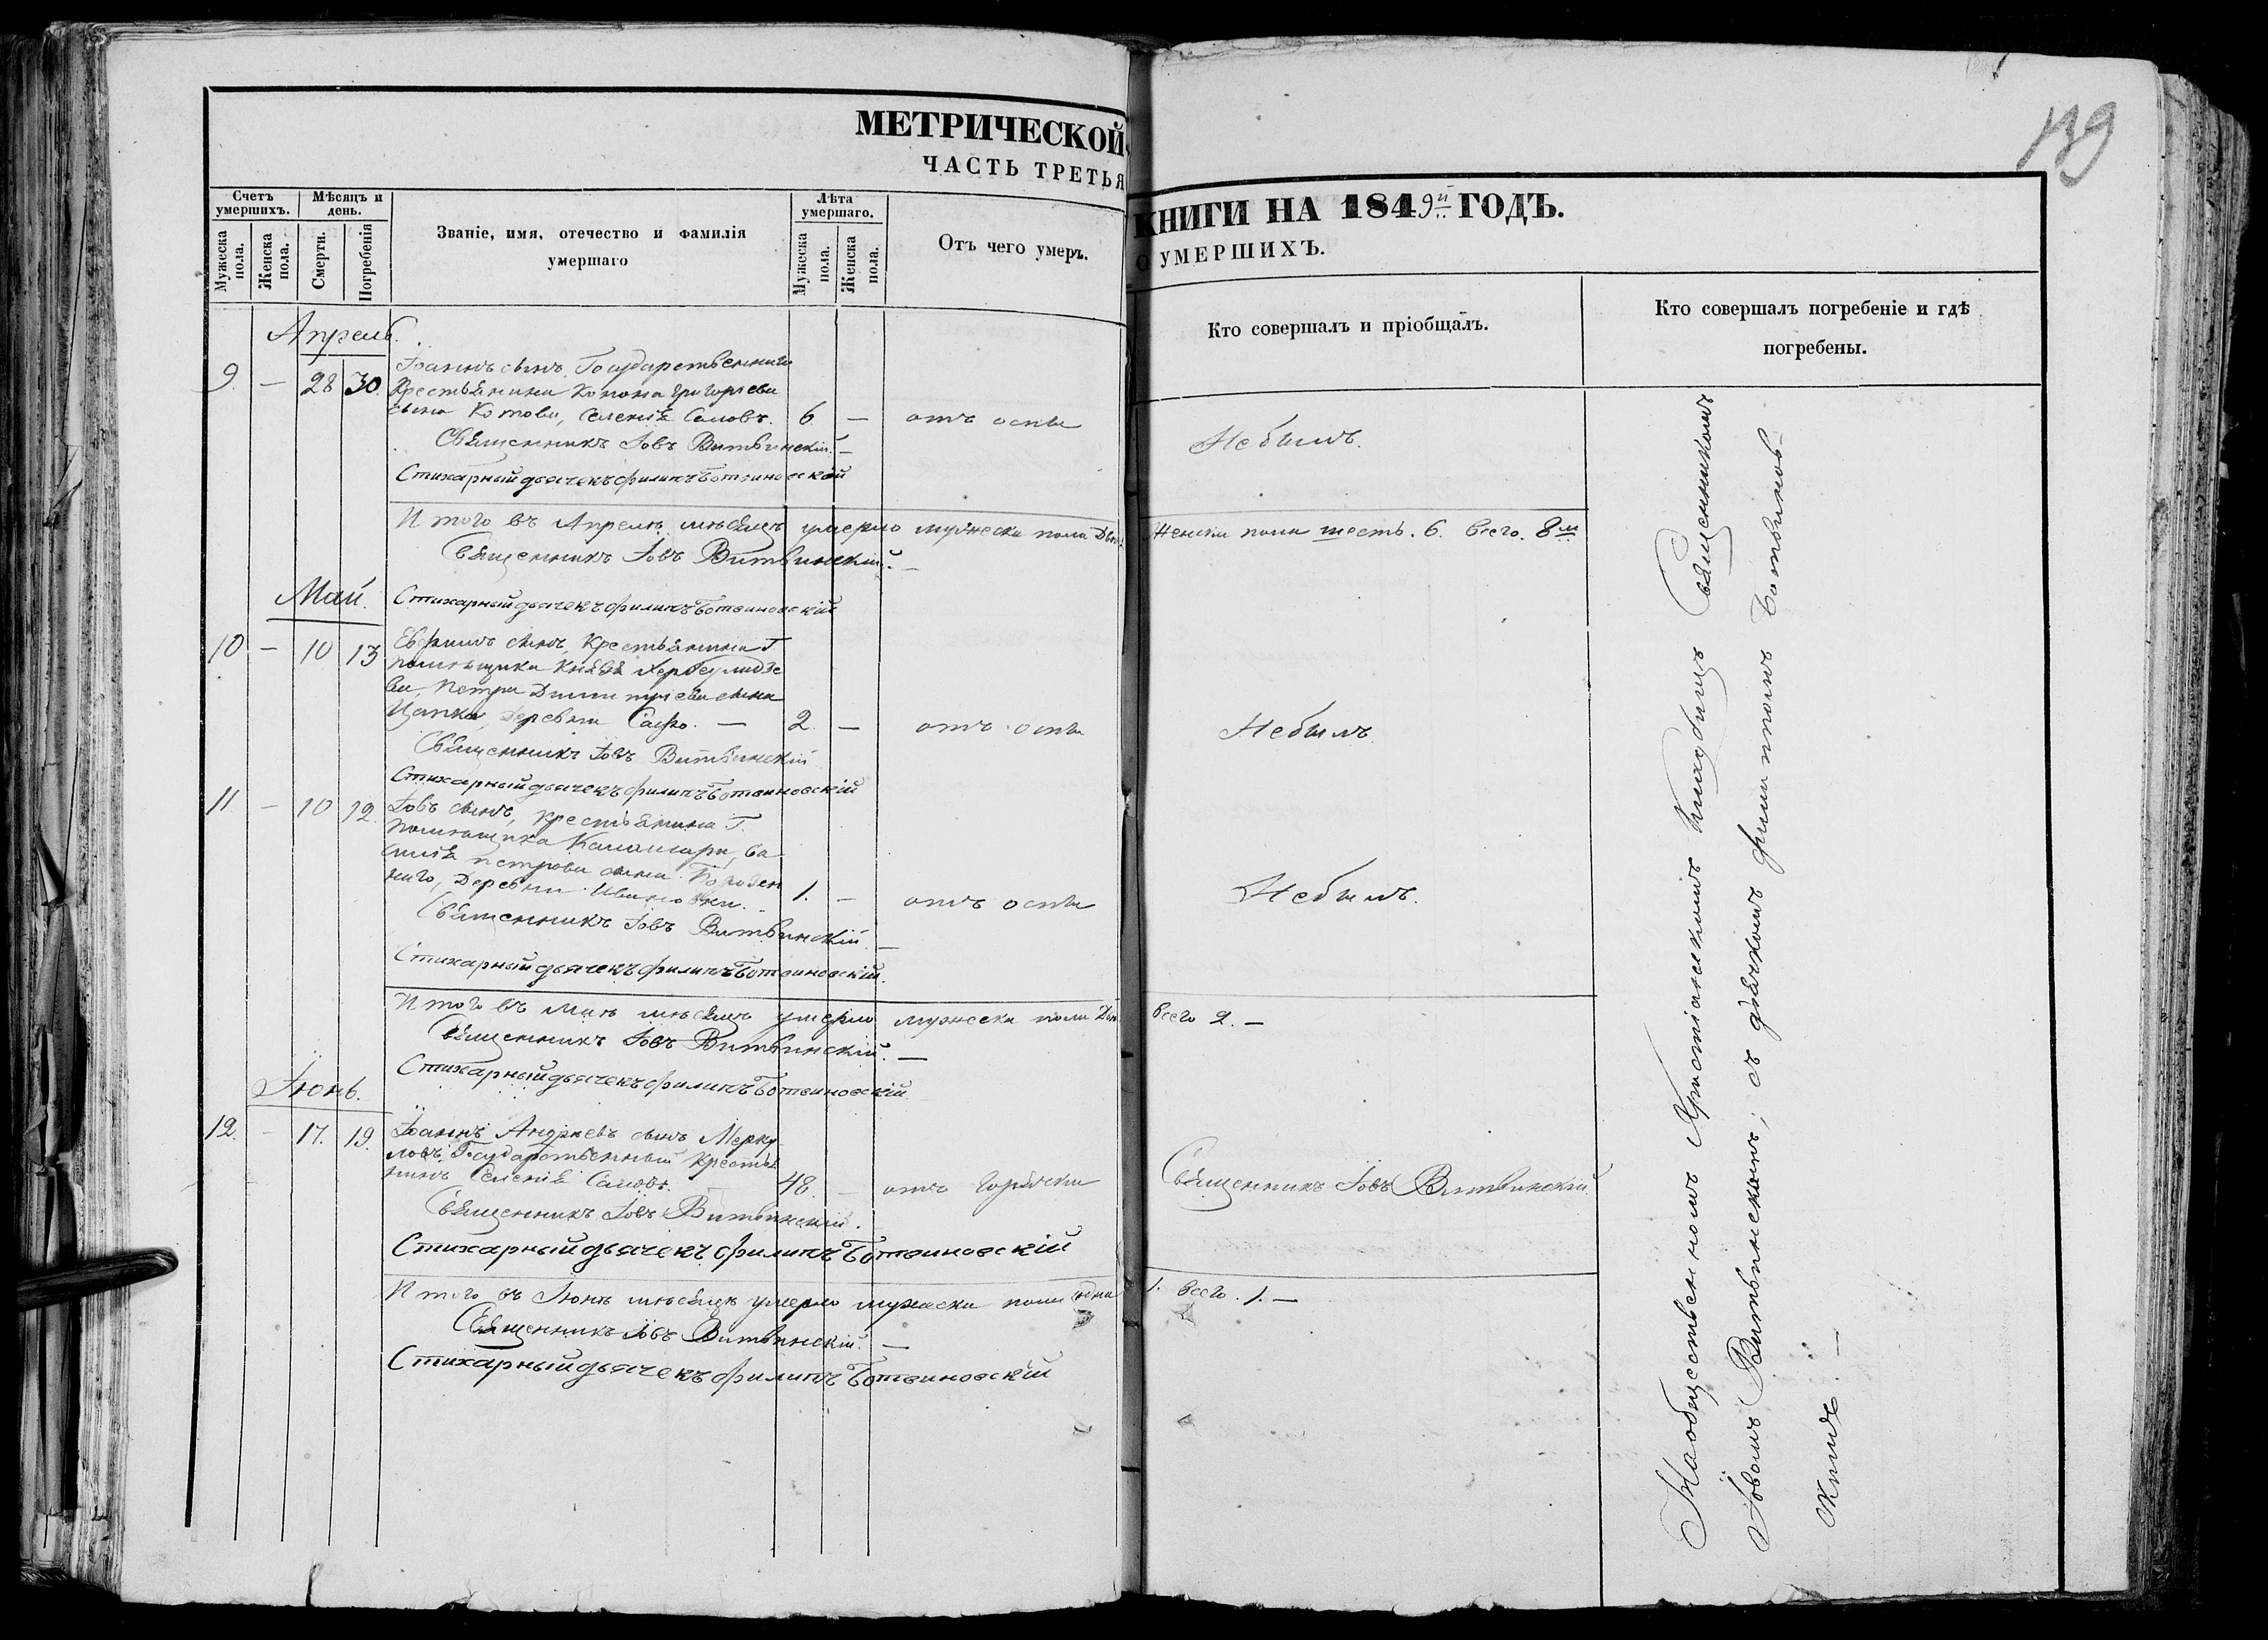 139
МЕТРИЧЕСКОЙ КНИГИ НА 1849й ГОДЪ.
ЧАСТЬ ТРЕТЬЯ О УМЕРШИХЪ.
Счетъ умершихъ.
Мужеска пола.
Женска пола.
Мѣсяцъ и день.
Смерти.
Погребенія
Званіе, имя, отечество и фамилія
умершаго
Лѣта умершаго.
Мужеска пола.
Женска пола.
Отъ чего умеръ.
Кто совершалъ и пріобщалъ.
Кто совершалъ погребеніе и гдѣ
погребены.
Апрель.
9 — 28 30.
Іоаннъ сынъ, Государственнаго
Крестьянина Конона Григорьева
сына Котова, Селенія 6 — отъ оспы Небылъ.
Священникъ Іовъ Витвинскій. —
Стихарный дьячекъ Филипъ Ботвиновскій
Итого въ Апрелѣ мѣсяцѣ умерло мужеска пола Женска пола шесть. 6. всего. 8м
Священникъ Іовъ Витвинскій. —
Стихарный дьячекъ Филипъ Ботвиновскій
Май.
10 — 10 13
Евфимъ сынъ, Крестьянина Г.
помѣщика Князя
ва, Петра Димитріева сына
Цапка, деревни — 2. — отъ оспы Небылъ
Священникъ Іовъ Витвинскій
Стихарный дьячекъ Филипъ Ботвиновскій
11 — 10 12.
Іовъ сынъ, крестьянина Г.
помѣщика Ва-
силія петрова сына
наго, Деревни 1. — отъ оспы Небылъ.
Священникъ Іовъ Витвинскій. —
Стихарный дьячекъ Филипъ Ботвиновскій.
Итого въ Маѣ мѣсяцѣ умерло мужеска пола всего 2. —
Священникъ Іовъ Витвинскій. —
Стихарный дьячекъ Филипъ Ботвиновскій
Іюнь.
12. — 17. 19.
Іоаннъ Андреевъ сынъ Мерку
ловъ, Государственный Крестья
нинъ Селенія 48. — отъ горячки Священникъ Іовъ Витвинскій.
Священникъ Іовъ Витвинскій.
Стихарный дьячекъ Филипъ Ботвиновскій
Итого въ Іюнѣ мѣсяцѣ умерло мужеска пола одна 1. всего. 1. —
Священникъ Іовъ Витвинскій. —
Стихарный дьячекъ Филипъ Ботвиновскій
На общественномъ Христіанскомъ Кладбищѣ Священникомъ
Іовомъ Витвинскимъ, съ дьячкомъ Филиппомъ Ботвинов-
скимъ. —